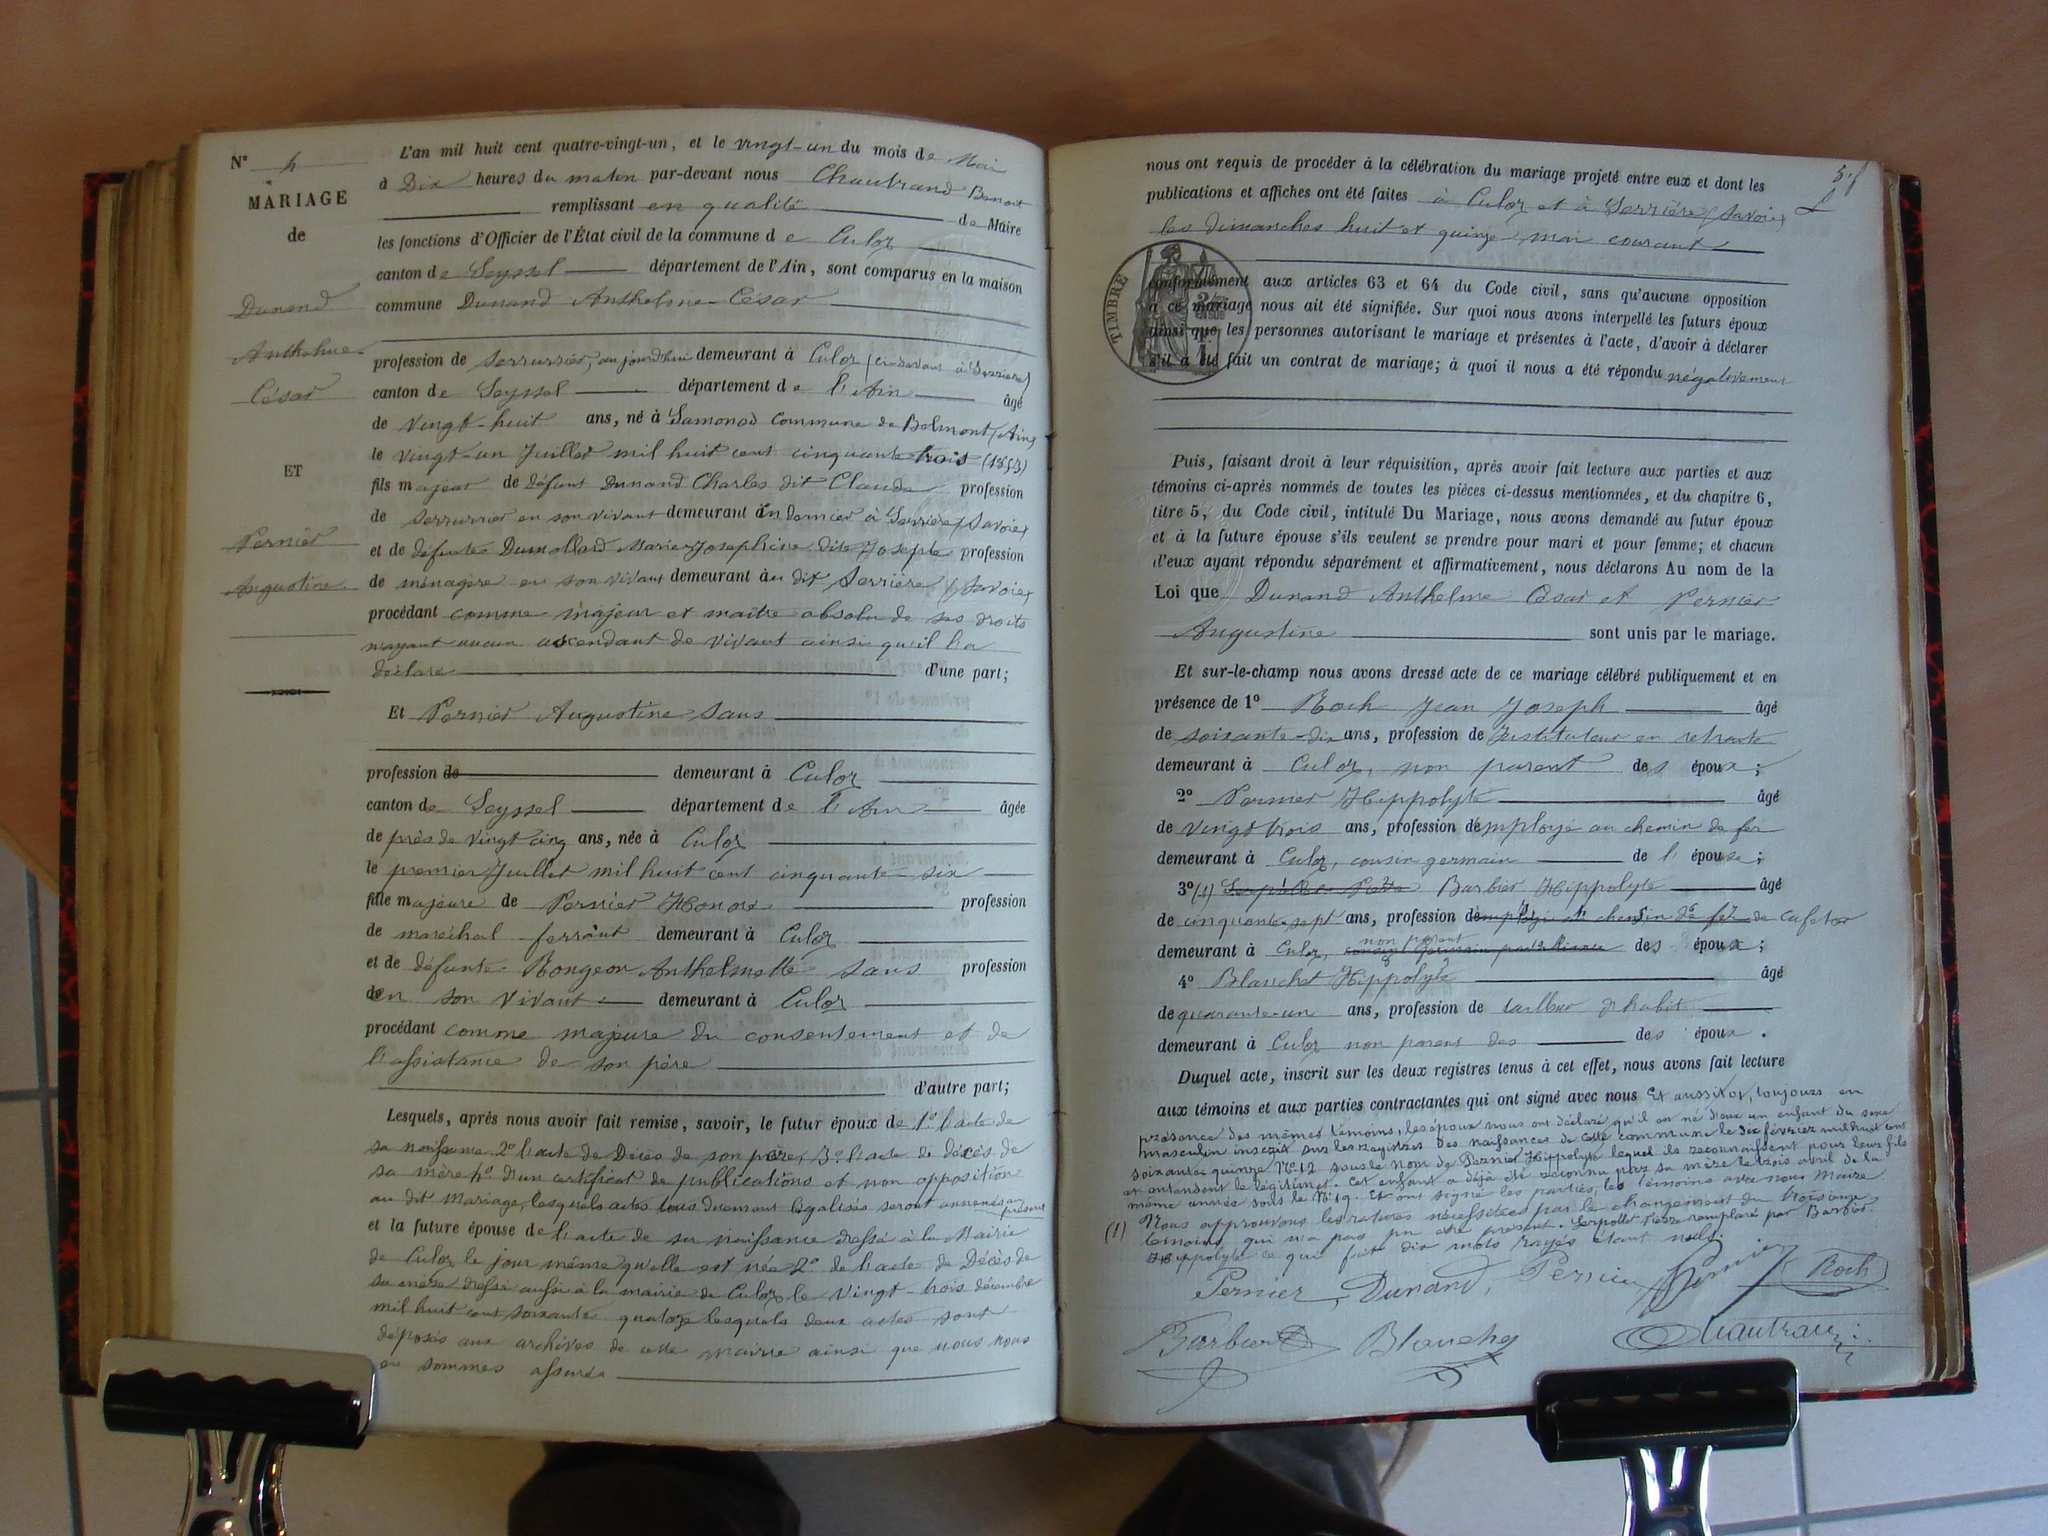 N° 4
MARIAGE
de
Dunand
Anthelme-
César
ET
Pernier
Augustine
L'an mil huit cent quatre-vingt-un, et le vingt-un du mois de Mai
à Dix heures du matin par-devant nous Chautrand Benoit
remplissant en qualité de Maire
les fonctions d'Officier de l'État civil de la commune de Culoz
canton de Seyssel département de l'Ain, sont comparus en la maison
commune Dunand Anthelme-César
profession de serrurier, aujourd'hui demeurant à Culoz (ci-devant à Serrière)
canton de Seyssel département de l'Ain âgé
de vingt-huit ans, né à Samonod commune de Belmont (Ain)
le vingt-un Juillet mil huit cent cinquante trois (1853)
fils majeur de défunt Dunand Charles dit Claude profession
de serrurier en son vivant demeurant en dernier à Serrière (Savoie)
et de défunte Dumollard Marie Josephine dite Josepte profession
de ménagère en son vivant demeurant au dit Serrière (Savoie)
procédant comme majeur et maître absolu de ses droits
n'ayant aucun ascendant de vivant ainsi qu'il l'a
déclaré d'une part;
Et Pernier Augustine sans
profession de demeurant à Culoz
canton de Seyssel département de l'Ain âgée
de près de vingt cinq ans, née à Culoz
le premier Juillet mil huit cent cinquante six
fille majeure de Pernier Honoré profession
de maréchal ferrant demeurant à Culoz
et de défunte Rongeon Anthelmette sans profession
en son vivant demeurant à Culoz
procédant comme majeure du consentement et de
l'assistance de son père
d'autre part;
Lesquels, après nous avoir fait remise, savoir, le futur époux de 1° l'acte de
sa naissance 2° l'acte de Décès de son père, 3° l'acte de décès de
sa mère 4° d'un certificat de publications et non opposition
au dit mariage, lesquels actes tous dument légalisés seront annexés au présent
et la future épouse de l'acte de sa naissance dressé à la Mairie
de Culoz le jour même qu'elle est née 2° de l'acte de Décès de
sa mère dressé aussi à la mairie de Culoz le vingt-trois décembre
mil huit cent soixante quatorze lesquels deux actes sont
déposés aux archives de cette mairie ainsi que nous nous
en sommes assurés
nous ont requis de procéder à la célébration du mariage projeté entre eux et dont les
publications et affiches ont été faites à Culoz et à Serrière (Savoie)
les dimanches huit et quinze mai courant
TIMBRE
conformément aux articles 63 et 64 du Code civil, sans qu'aucune opposition
à ce mariage nous ait été signifiée. Sur quoi nous avons interpellé les futurs époux
ainsi que les personnes autorisant le mariage et présentes à l'acte, d'avoir à déclarer
s'il a été fait un contrat de mariage; à quoi il nous a été répondu négativement
Puis, faisant droit à leur réquisition, après avoir fait lecture aux parties et aux
témoins ci-après nommés de toutes les pièces ci-dessus mentionnées, et du chapitre 6,
titre 5, du Code civil, intitulé Du Mariage, nous avons demandé au futur époux
et à la future épouse s'ils veulent se prendre pour mari et pour femme; et chacun
d'eux ayant répondu séparément et affirmativement, nous déclarons Au nom de la
Loi que Dunand Anthelme César et Pernier
Augustine sont unis par le mariage.
Et sur-le-champ nous avons dressé acte de ce mariage célébré publiquement et en
présence de 1° Roch Jean Joseph âgé
de soixante-dix ans, profession de Instituteur en retraite
demeurant à Culoz, non parent des époux;
2° Pernier Hippolyte âgé
de vingt trois ans, profession d'employé au chemin de fer
demeurant à Culoz, cousin germain de l'épouse;
3° (1) Serpollet Pierre Barbier Hippolyte âgé
de cinquante-sept ans, profession d'employé au chemin de fer de cafetier
non parent
demeurant à Culoz, des époux;
4° Blanchet Hippolyte âgé
de quarante-un ans, profession de tailleur d'habit
demeurant à Culoz non parent des des époux.
Duquel acte, inscrit sur les deux registres tenus à cet effet, nous avons fait lecture
aux témoins et aux parties contractantes qui ont signé avec nous Et aussitôt, toujours en
présence des mêmes témoins, les époux nous ont déclaré qu'il est né d'eux un enfant du sexe
masculin inscrit sur les registres des naissances de cette commune le dix février mil huit cent
soixante quinze N° 12 sous le nom de Pernier Hippolyte lequel ils reconnaissent pour leur fils
et entendent le légitimer. Cet enfant a déjà été reconnu par sa mère le trois avril de la
même année sous le N° 19. Et ont signé les parties, les témoins avec nous Maire
(1) Nous approuvons les ratures nécessitées par le changement du troisième
témoin qui n'a pas pu être présent. Serpollet Pierre remplacé par Barbier
Hippolyte ce qui fait dix mots rayés étant nuls.
Pernier, Dunand, Pernier Roch
Barbier Blanchet Chautrand